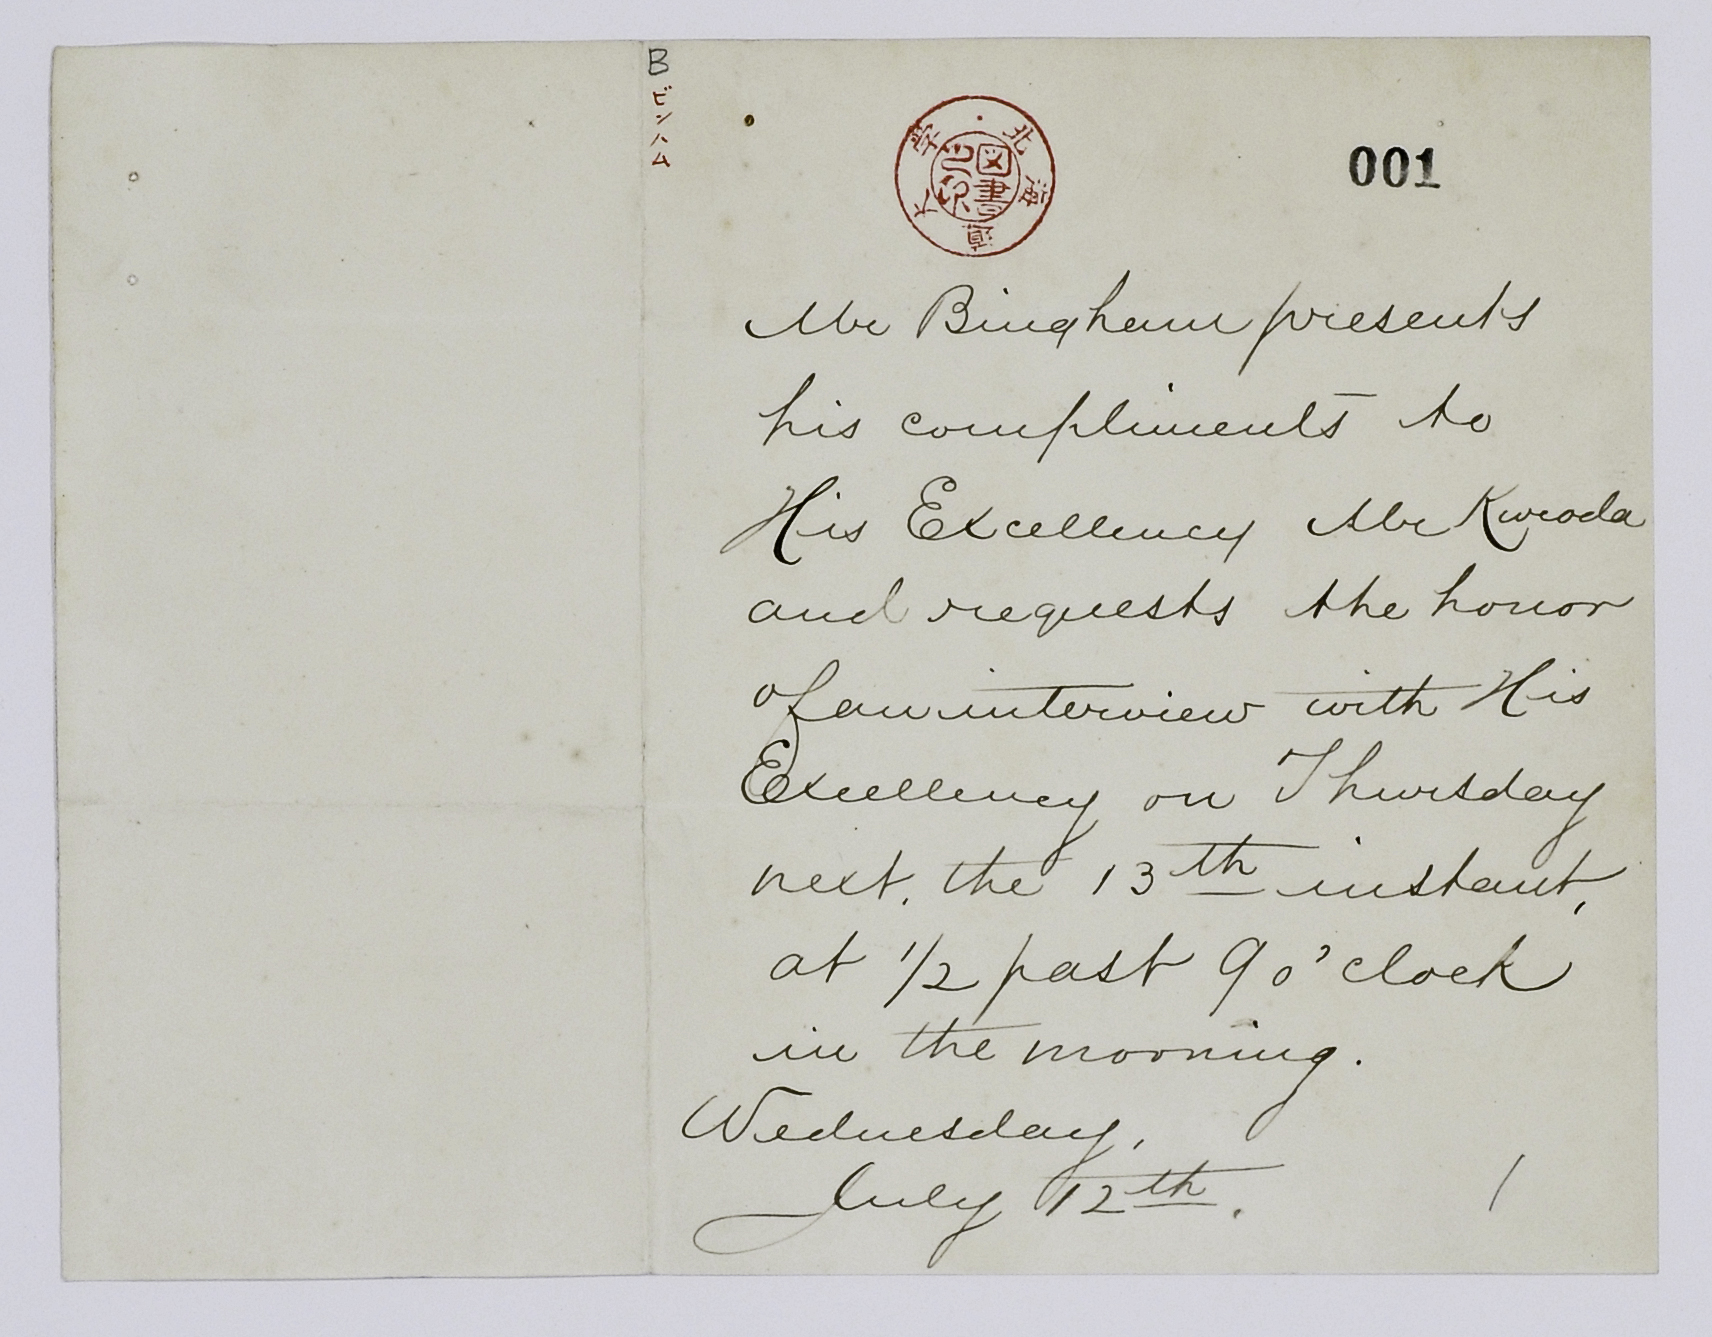 B
ビンハム
北海道大学
図書之印
001
Mr Bingham presents
his compliments to
His Excellency Mr Kuroda
and requests the honor
of an interview with His
Excellency on Thursday
next, the 13th instant,
at 1/2 past 9 o'clock
in the morning.
Wednesday,
July 12th.
1